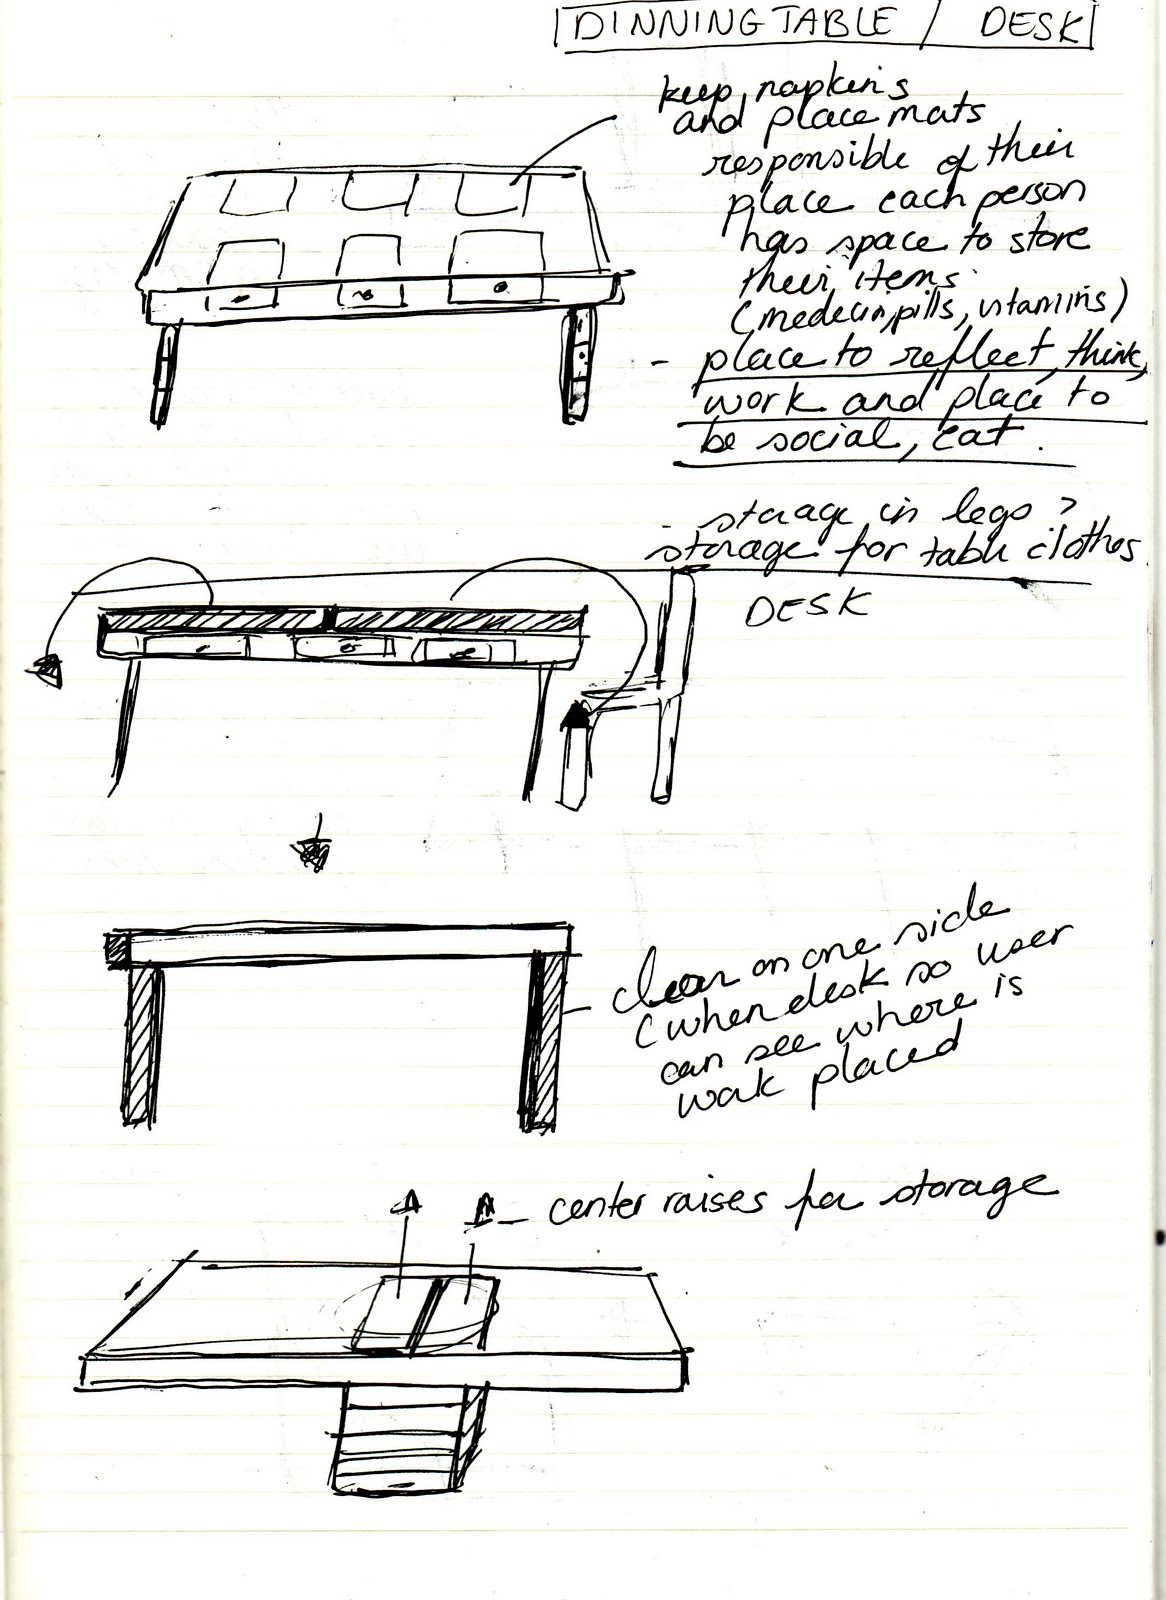 DINNING TABLE / DESK
keep napkins
and place mats
responsible of their
place each person
has space to store
their items
(medecin, pills, vitamins)
- place to reflect, think,
work and place to
be social, eat.
- storage in legs ?
- storage for table clothes
DESK
- clear on one side
(when desk so user
can see where is
work placed
- center raises for storage